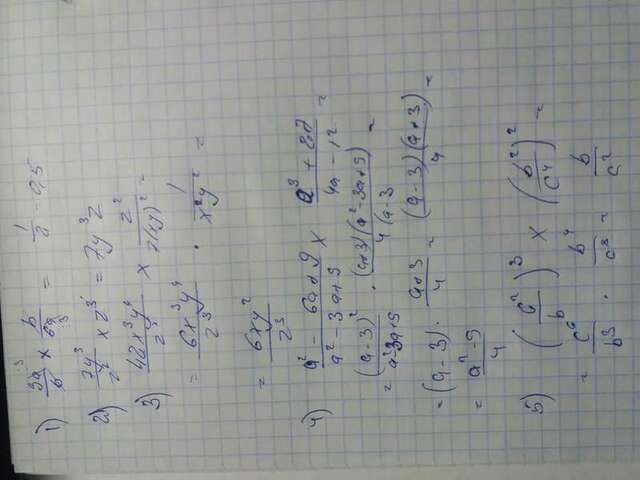 1) 3a³/b × b/6a³ = 1/2 = 0,5
2) 7y³/z² × z³ = 7y³z
3) 42x³y⁴/z⁵ × z²/7(xy)² =
= 6x³y⁴/z³ · 1/x²y² =
= 6xy²/z³
4) a² - 6a + 9/a² - 3a + 9 × a³ + 27/4a - 12 =
= (a-3)²/a²-3a+9 · (a+3)(a²-3a+9)/4(a-3 =
= (a-3) · a+3/4 = (a-3)(a+3)/4 =
= a²-9/4
5) (c²/b)³ × (b²/c⁴)² =
= c⁶/b³ · b⁴/c⁸ = b/c²